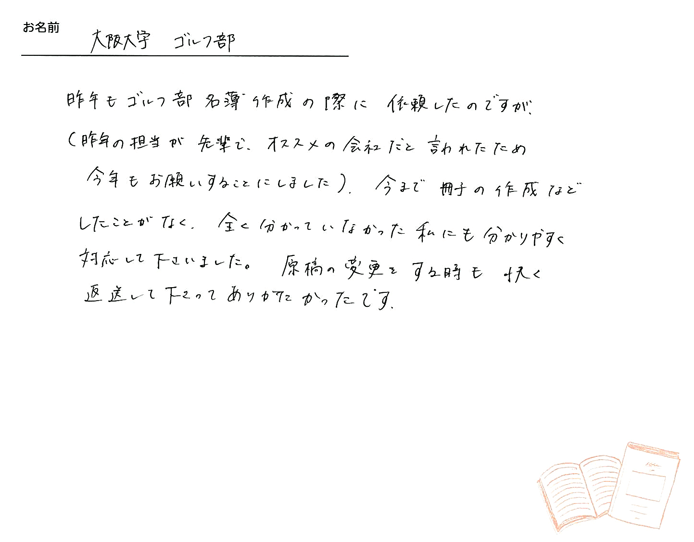 お名前
大阪大学 ゴルフ部
昨年もゴルフ部名簿作成の際に 依頼したのですが、
(昨年の担当が 先輩で、オススメの会社だと 言われたため
今年もお願いすることにしました)、今まで 冊子の作成など
したことがなく、全く分かっていなかった私にも分かりやすく
対応して下さいました。 原稿の変更をする時も 快く
返送して下さってありがたかったです。